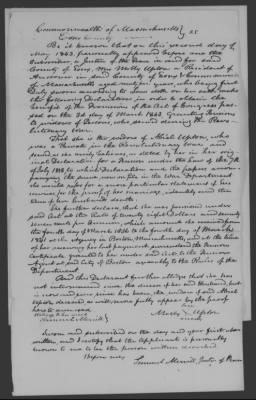 Commonwealth of Massachusetts
Essex County } SS
Be it known that on this second day of
May 1843, personally appeared before me the
Subscriber, a Justice of the Peace in and for said
County of Essex, Mrs Molly Upton a Resident of
Andover in said County of Essex & Commonwealth
of Massachusetts aged seventy years, who being first
Duly sworn according to Law doth on her oath, make
the following Declaration in order to obtain the
benefit of the Provision of the Act of Congress passed
on the 3d day of March 1843 Granting Pensions
to widows of Persons who served during the Revolutionary
war.
That she is the widow of Abiel Upton, who
was a Private in the Revolutionary war, and
served as she verily believes, as stated by her in her original
Declaration for a Pension under the Law of the 7th
of July 1838 to which Declaration and the papers accompanying
the same now on file in the War Department
she would refer for a more particular statement of his
service, for the proof of her marriage, identity and the
time of her husbands death.
She further declares that she was pensioned under
said Act at the Rate of twenty eight Dollars and seventy
seven cents per Annum, which amount she received from
the fourth day of March 1836 to the fourth day of March
1841 at the Agency in Boston, Massachusetts and at the time
of her receiving her last payment surrendered the Pension
Certificate granted to her under said Act to the Pension
Agent at said City of Boston agreeably to the Rules of the
Department.
And this Declarant further alleges that she has
not intermarried since the decease of her said Husband, but
is now and ever since has been, the widow of said Abiel
Upton deceased as will more fully appear by the proof
hereto annexed
her
Molly X Upton
mark
Samuel Merrill
Sworn and subscribed on the day and year first above
written, and I certify that the applicant is personally
known to me to be the person within described
Before me,
Samuel Merrill, Justice of Peace